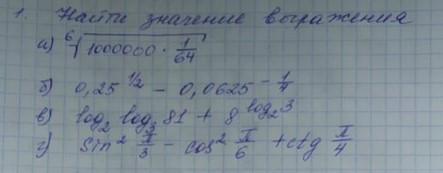 1. Найти значение выражения
а) ⁶√(1000000 · 1/64)
б) 0,25^(1/2) − 0,0625^(−1/4)
в) log₂ log₃ 81 + 8^(log₂ 3)
г) sin² π/3 − cos² π/6 + ctg π/4